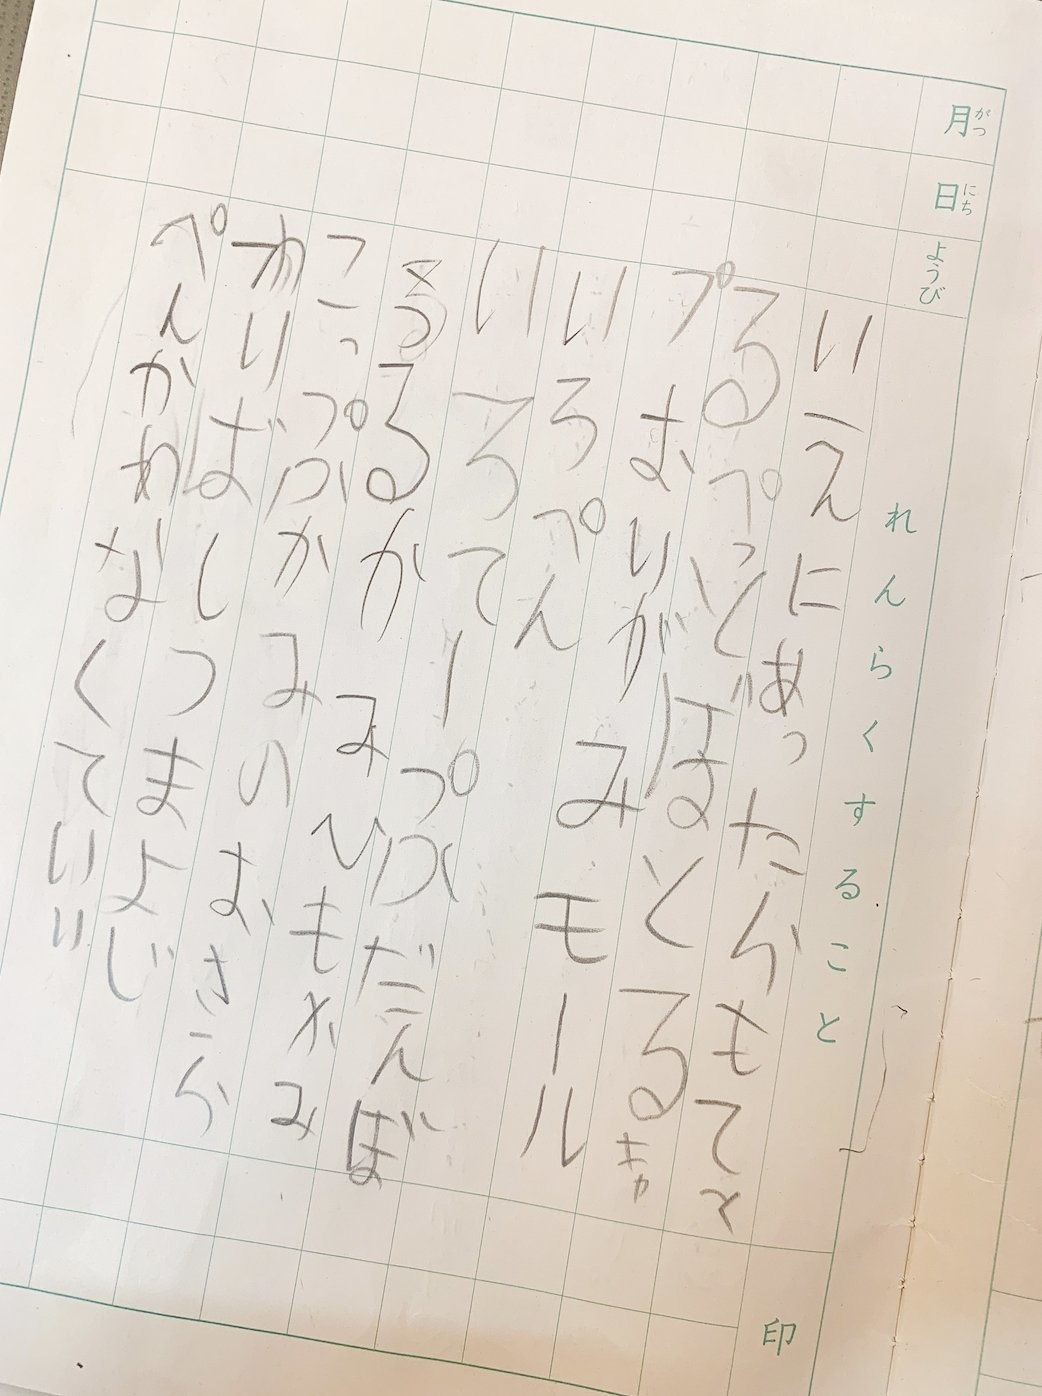 月 がつ
日 にち
ようび
れんらくすること
いえにあったらもてく
るぺっどぼとるきゃ
プ おりがみ モール
いろぺん
いろてーぷ だんぼ
うる がみ ひも かみ
こっぷ かみのおさら
わりばし つまよじ
ぺんかわなくていい
印